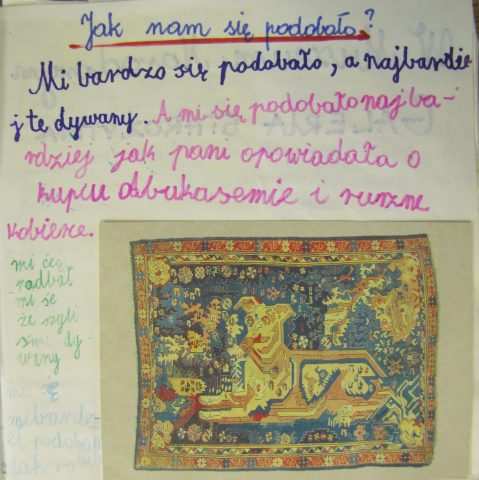 Jak nam się podobało?
Mi bardzo się podobało, a najbardzie
j te dywany. A mi się podobało najba-
rdziej jak pani opowiadała o
kupcu abukasemie i
kobierce.
mi się
ni se
że szyli
śmy dy-
wany.
mi się
podobało